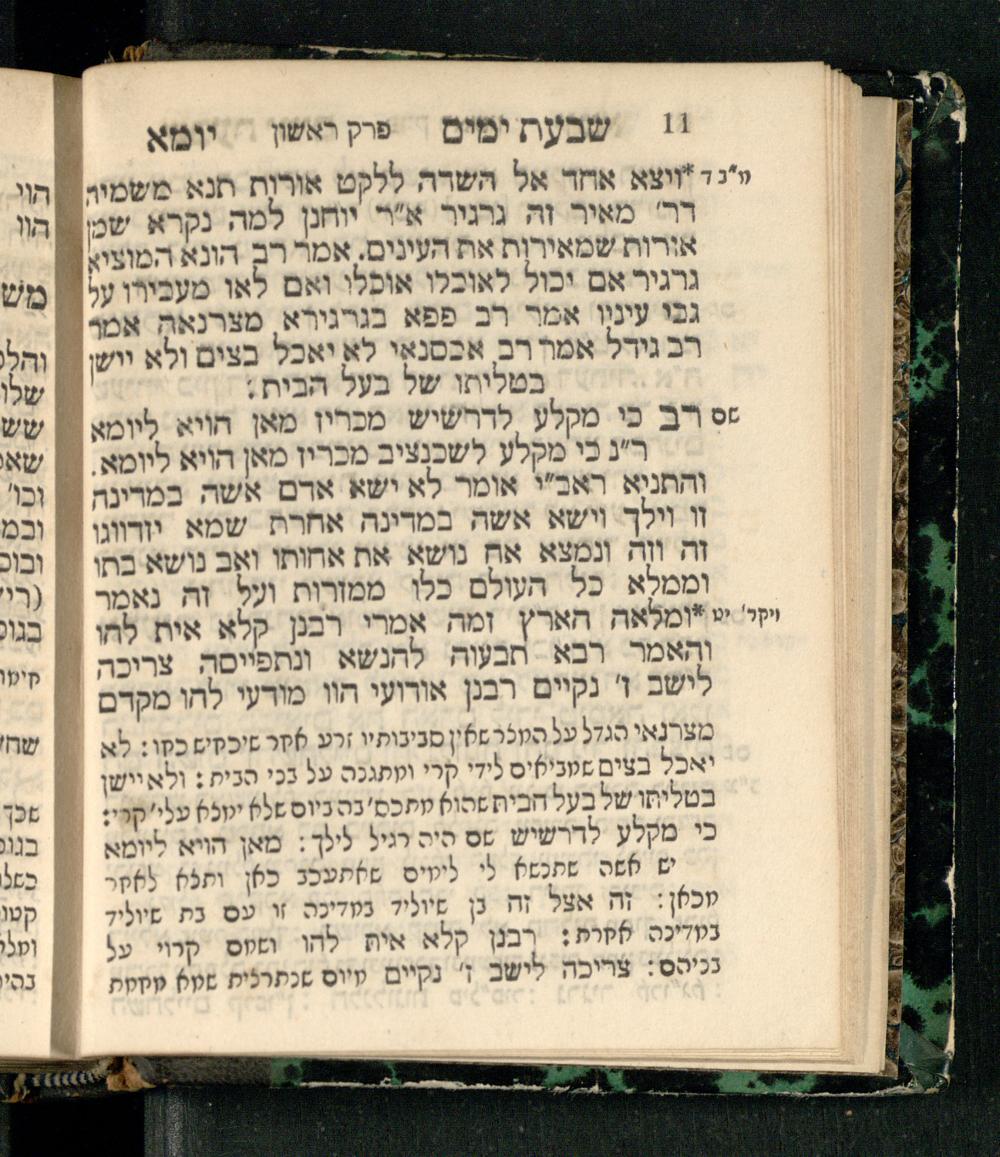 11 שבעת ימים פרק ראשון יומא
מ"ב ד *ויצא אחד אל השדה ללקט אורות תנא משמיה
דר' מאיר זה גרגיר א"ר יוחנן למה נקרא שמן
אורות שמאירות את העינים. אמר רב הונא המוציא
גרגיר אם יכול לאוכלו אוכלו ואם לאו מעבירו על
גבי עיניו אמר רב פפא בגרגירא מצרנאה אמר
רב גידל אמר רב אכסנאי לא יאכל בצים ולא יישן
בטליתו של בעל הבית:
שם רב כי מקלע לדרשיש מכריז מאן הויא ליומא
ר"נ כי מקלע לשכנציב מכריז מאן הויא ליומא.
והתניא ראב"י אומר לא ישא אדם אשה במדינה
זו וילך וישא אשה במדינה אחרת שמא יזדווגו
זה וזה ונמצא אח נושא את אחותו ואב נושא בתו
וממלא כל העולם כלו ממזרות ועל זה נאמר
ויקר' יט *ומלאה הארץ זמה אמרי רבנן קלא אית להו
והאמר רבא תבעוה להנשא ונתפייסה צריכה
לישב ז' נקיים רבנן אודועי הוו מודעי להו מקדם
מצרנאי הגדל על המצר שאין סביבותיו זרע אחר שיכחיש כחו: לא
יאכל בצים שמביאים לידי קרי ומתגנה על בני הבית: ולא יישן
בטליתו של בעל הבית שהוא מתכס' בה ביום שלא ימצא עלי' קרי:
כי מקלע לדרשיש שם היה רגיל לילך: מאן הויא ליומא
יש אשה שתנשא לי לימים שאתעכב כאן ותצא לאחר
מכאן: זה אצל זה בן שיוליד במדינה זו עם בת שיוליד
במדינה אחרת: רבנן קלא אית להו ושמם קרוי על
בניהם: צריכה לישב ז' נקיים מיום שנתרצית שמא מחמת
הוי
הוו
מש
שלו
שש
וכו'